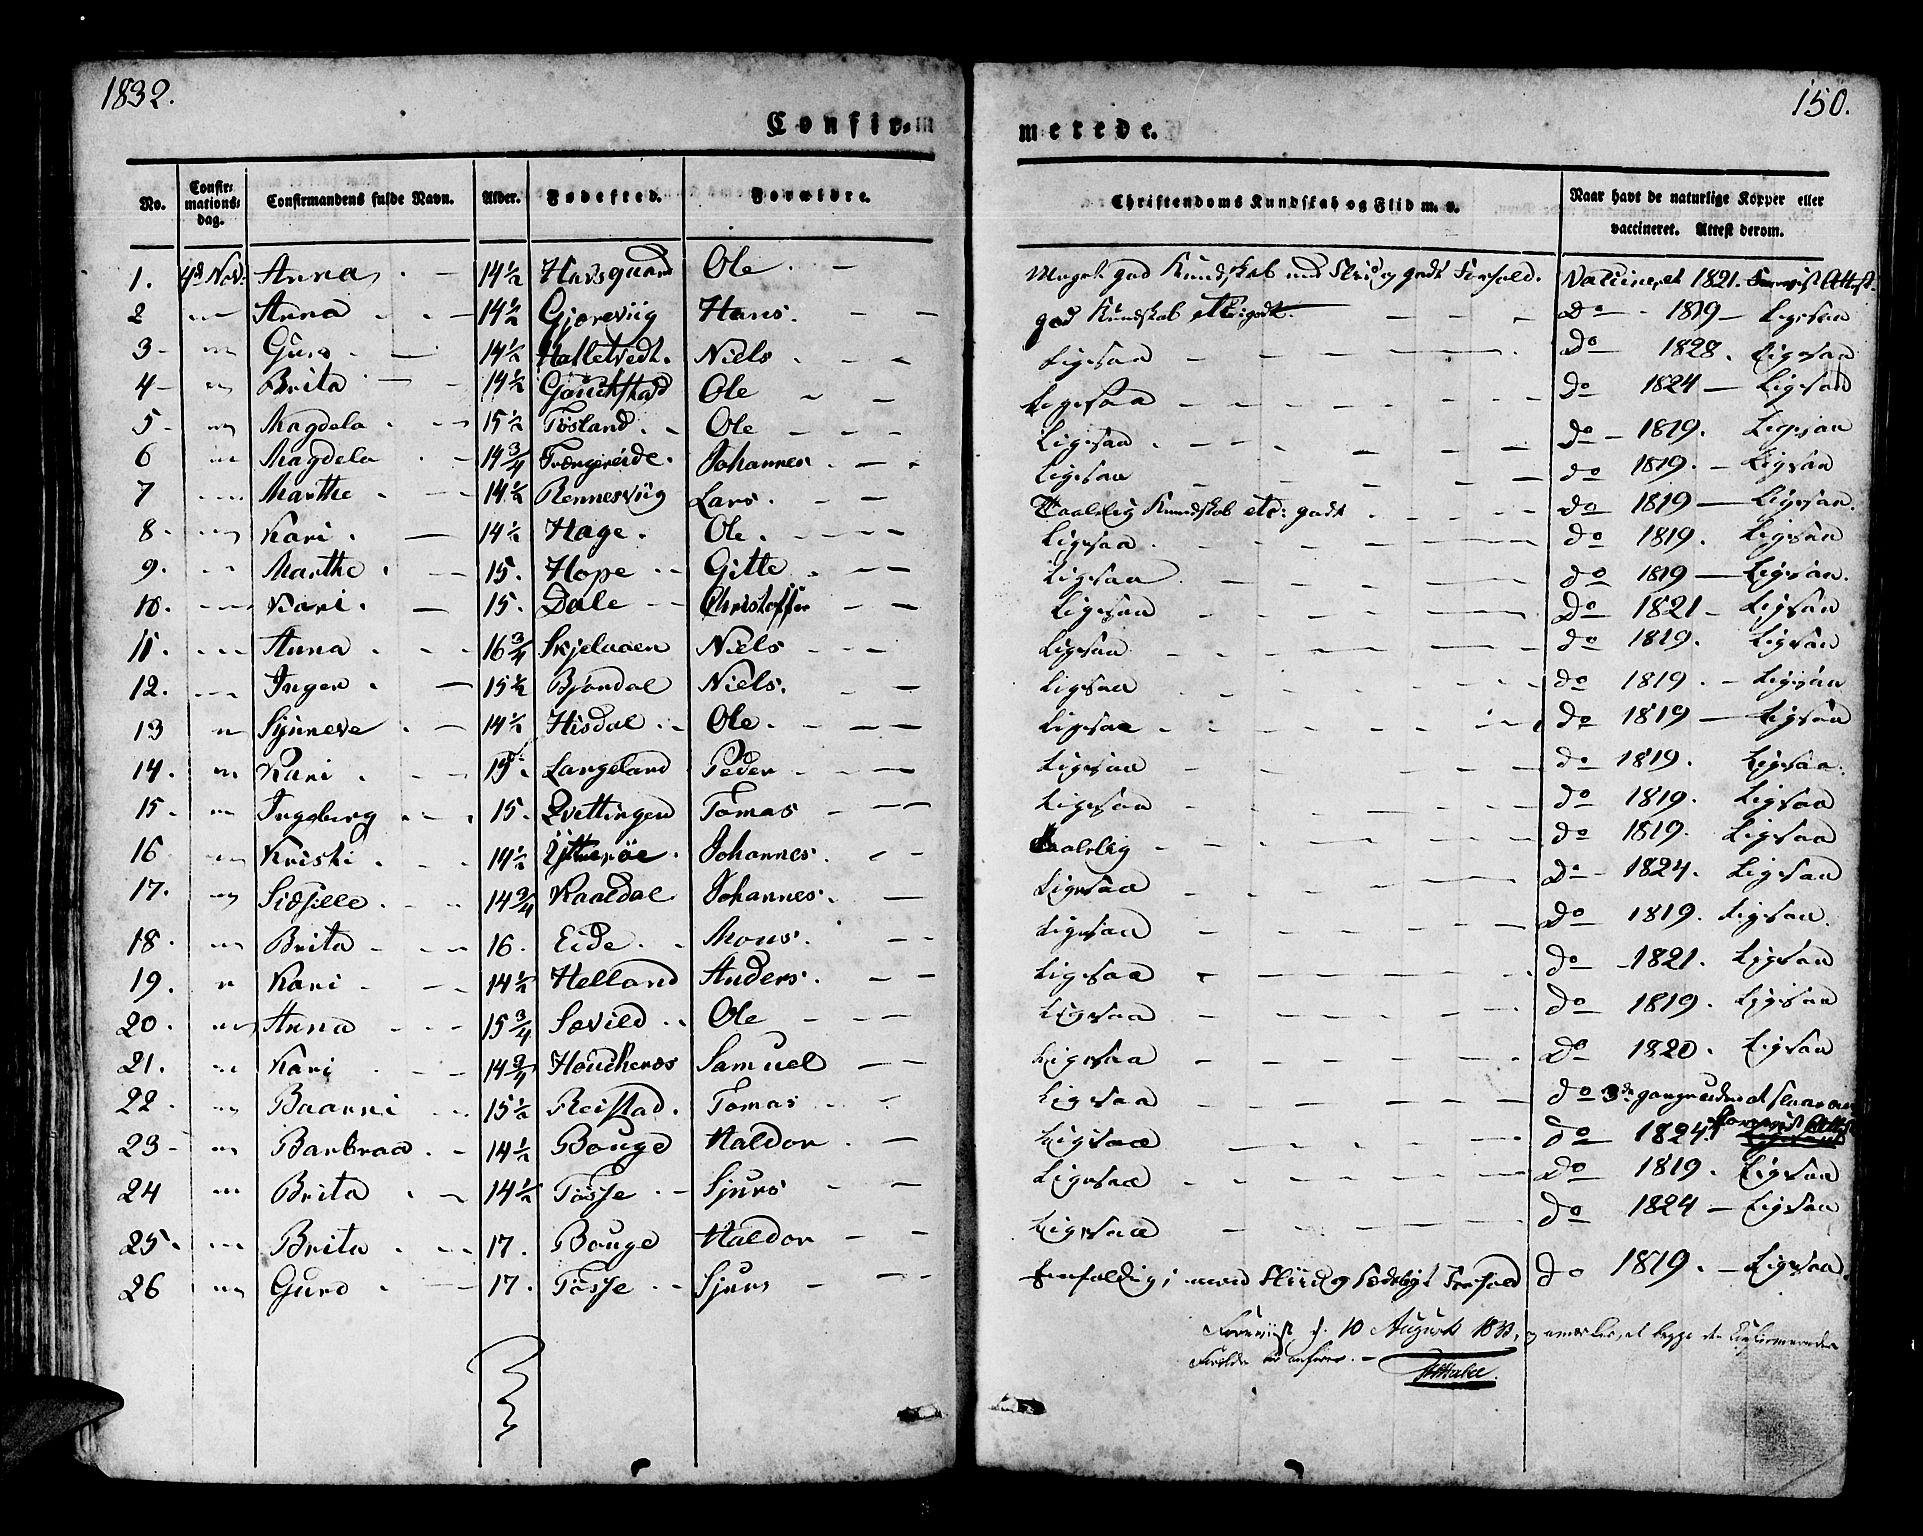 1832.
150.
Confir-
merede.
No. Confir-mations-dag. Confirmandens fulde Navn. Alder. Fødested. Forældre. Christendoms Kundskab og Flid m. v. Naar havt de naturlige Kopper eller vaccineret. Attest derom.
1. 4de Nov: Anna 14½ Ole Meget god Kundskab med Fliid og godt Forhold. Vaccineret 1821. Attest
2 Anna 14½ Gjoreviig Hans. god Kundskab etc: godt. Do 1819 Ligesaa
3 Guro 14½ Halletvedt. Niels Ligesaa Do 1828. Ligesaa
4 Brita 14½ Ole Ligesaa do 1824 Ligesaa
5 Magdela 15½ Tøsland. Ole Ligesaa do 1819. Ligesaa
6 Magdela 14¾ Trængereide. Johannes Ligesaa do 1819. Ligesaa
7 Marthe 14½ Rennesviig Lars. Taalelig Kundskab etc: godt do 1819 Ligesaa.
8. Kari. 14½ Hage. Ole. Ligesaa. do 1819. Ligesaa
9. Marthe 15. Hope Gitte Ligesaa do 1819 Ligesaa.
10. Kari. 15. Dale Christoffer Ligesaa Do 1821 Ligesaa
11. Anna 16¾ Niels Ligesaa do 1819. Ligesaa
12. Inger 15½ Bjørdal Niels. Ligesaa do 1819. Ligesaa
13 Synneve 14½ Hisdal Ole. Ligesaa do 1819 Ligesaa
14. Kari 15. Langeland Peder Ligesaa do 1819. Ligesaa.
15. Ingeborg 15. Qvettingen Tomas Ligesaa do 1819. Ligesaa
16 Kristi 14½ Yttreøe. Johannes. Taalelig do 1819. Ligesaa
17. Sidselle 14¾ Kaaldal Johannes. Ligesaa do 1824. Ligesaa
18. Brita 16. Eide. Mons. Ligesaa do 1819. Ligesaa.
19. Kari 14½ Helland Anders. Ligesaa do 1821. Ligesaa
20. Anna 15¾ Sævild Ole Ligesaa do 1819. Ligesaa
21. Kari 14¾ Samuel Ligesaa Do 1820. Ligesaa
22. Baarni 15½ Reistad. Tomas Ligesaa do 3de gange uden at slaae an
23 Barbraa 14½ Bouge Haldor. Ligesaa do 1824. foreviist Attest Ligesaa
24 Brita 14½ Tøsse Sjurs Ligesaa Do 1819. Ligesaa
25. Brita 17. Bouge Haldor Ligesaa do 1824 Ligesaa
26 Guro 17. Tøsse Sjurs Eenfoldig; med Fliid og Sædeligt Forhold do 1819. Ligesaa.
Foreviist d. 10 August 1833, og at begge